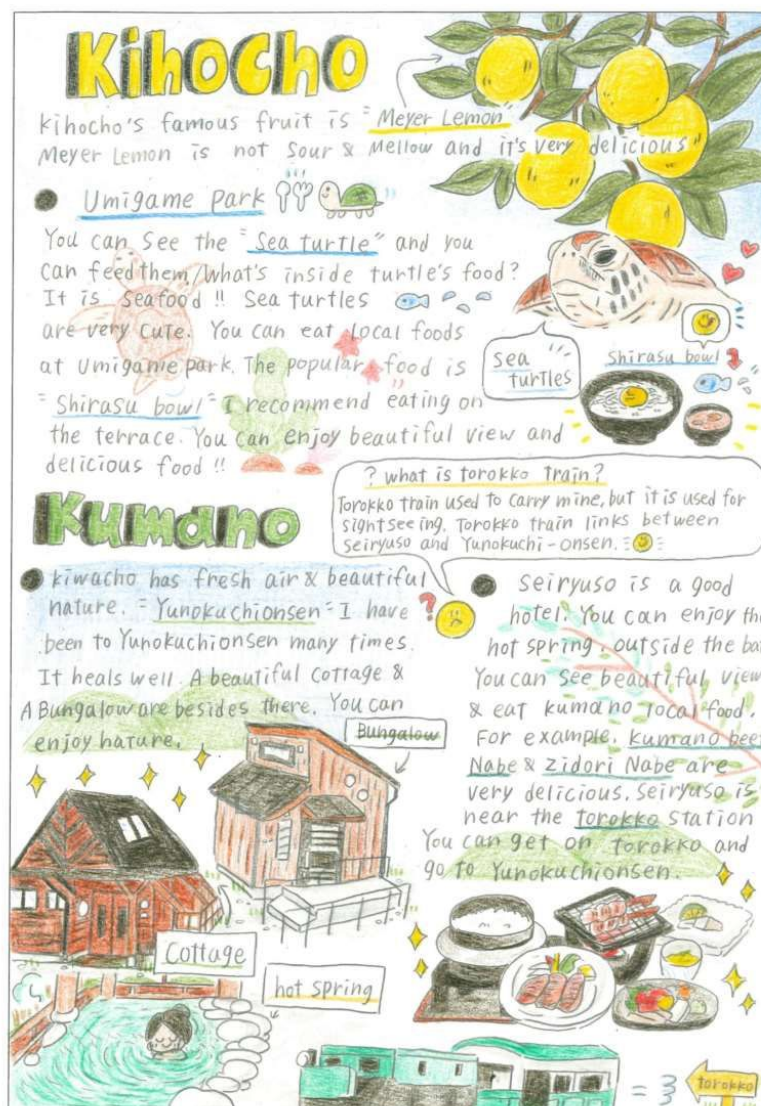 Kihocho
Kihocho's famous fruit is "Meyer Lemon"
Meyer Lemon is not sour & Mellow and it's very delicious"
● Umigame park
You can see the "Sea turtle" and you
can feed them/What's inside turtle's food?
It is seafood!! Sea turtles
are very cute. You can eat local foods
at Umigame park. The popular food is
"Shirasu bowl" I recommend eating on
the terrace. You can enjoy beautiful view and
delicious food!!
Sea
turtles
Shirasu bowl
Kumano
? what is torokko train?
Torokko train used to carry mine, but it is used for
sightseeing. Torokko train links between
Seiryuso and Yunokuchi-onsen.
● Kiwacho has fresh air & beautiful
nature. "Yunokuchionsen" I have
been to Yunokuchionsen many times.
It heals well. A beautiful cottage &
A Bungalow are besides there. You can
enjoy nature.
?
Bungalow
Cottage
hot spring
● Seiryuso is a good
hotel. You can enjoy the
hot spring, outside the
You can see beautiful view
& eat kumano local food.
For example. kumano beef
Nabe & zidori Nabe are
very delicious. Seiryuso is
near the torokko station
You can get on torokko and
go to Yunokuchionsen.
torokko